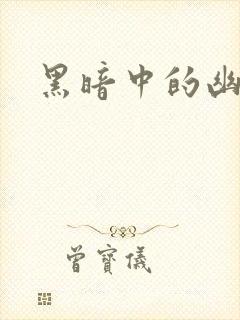 黑暗中的幽
曾寶儀